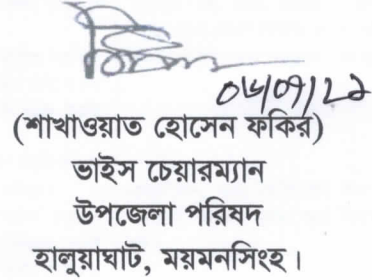 ০৬/০৭/২১
(শাখাওয়াত হোসেন ফকির)
ভাইস চেয়ারম্যান
উপজেলা পরিষদ
হালুয়াঘাট, ময়মনসিংহ।